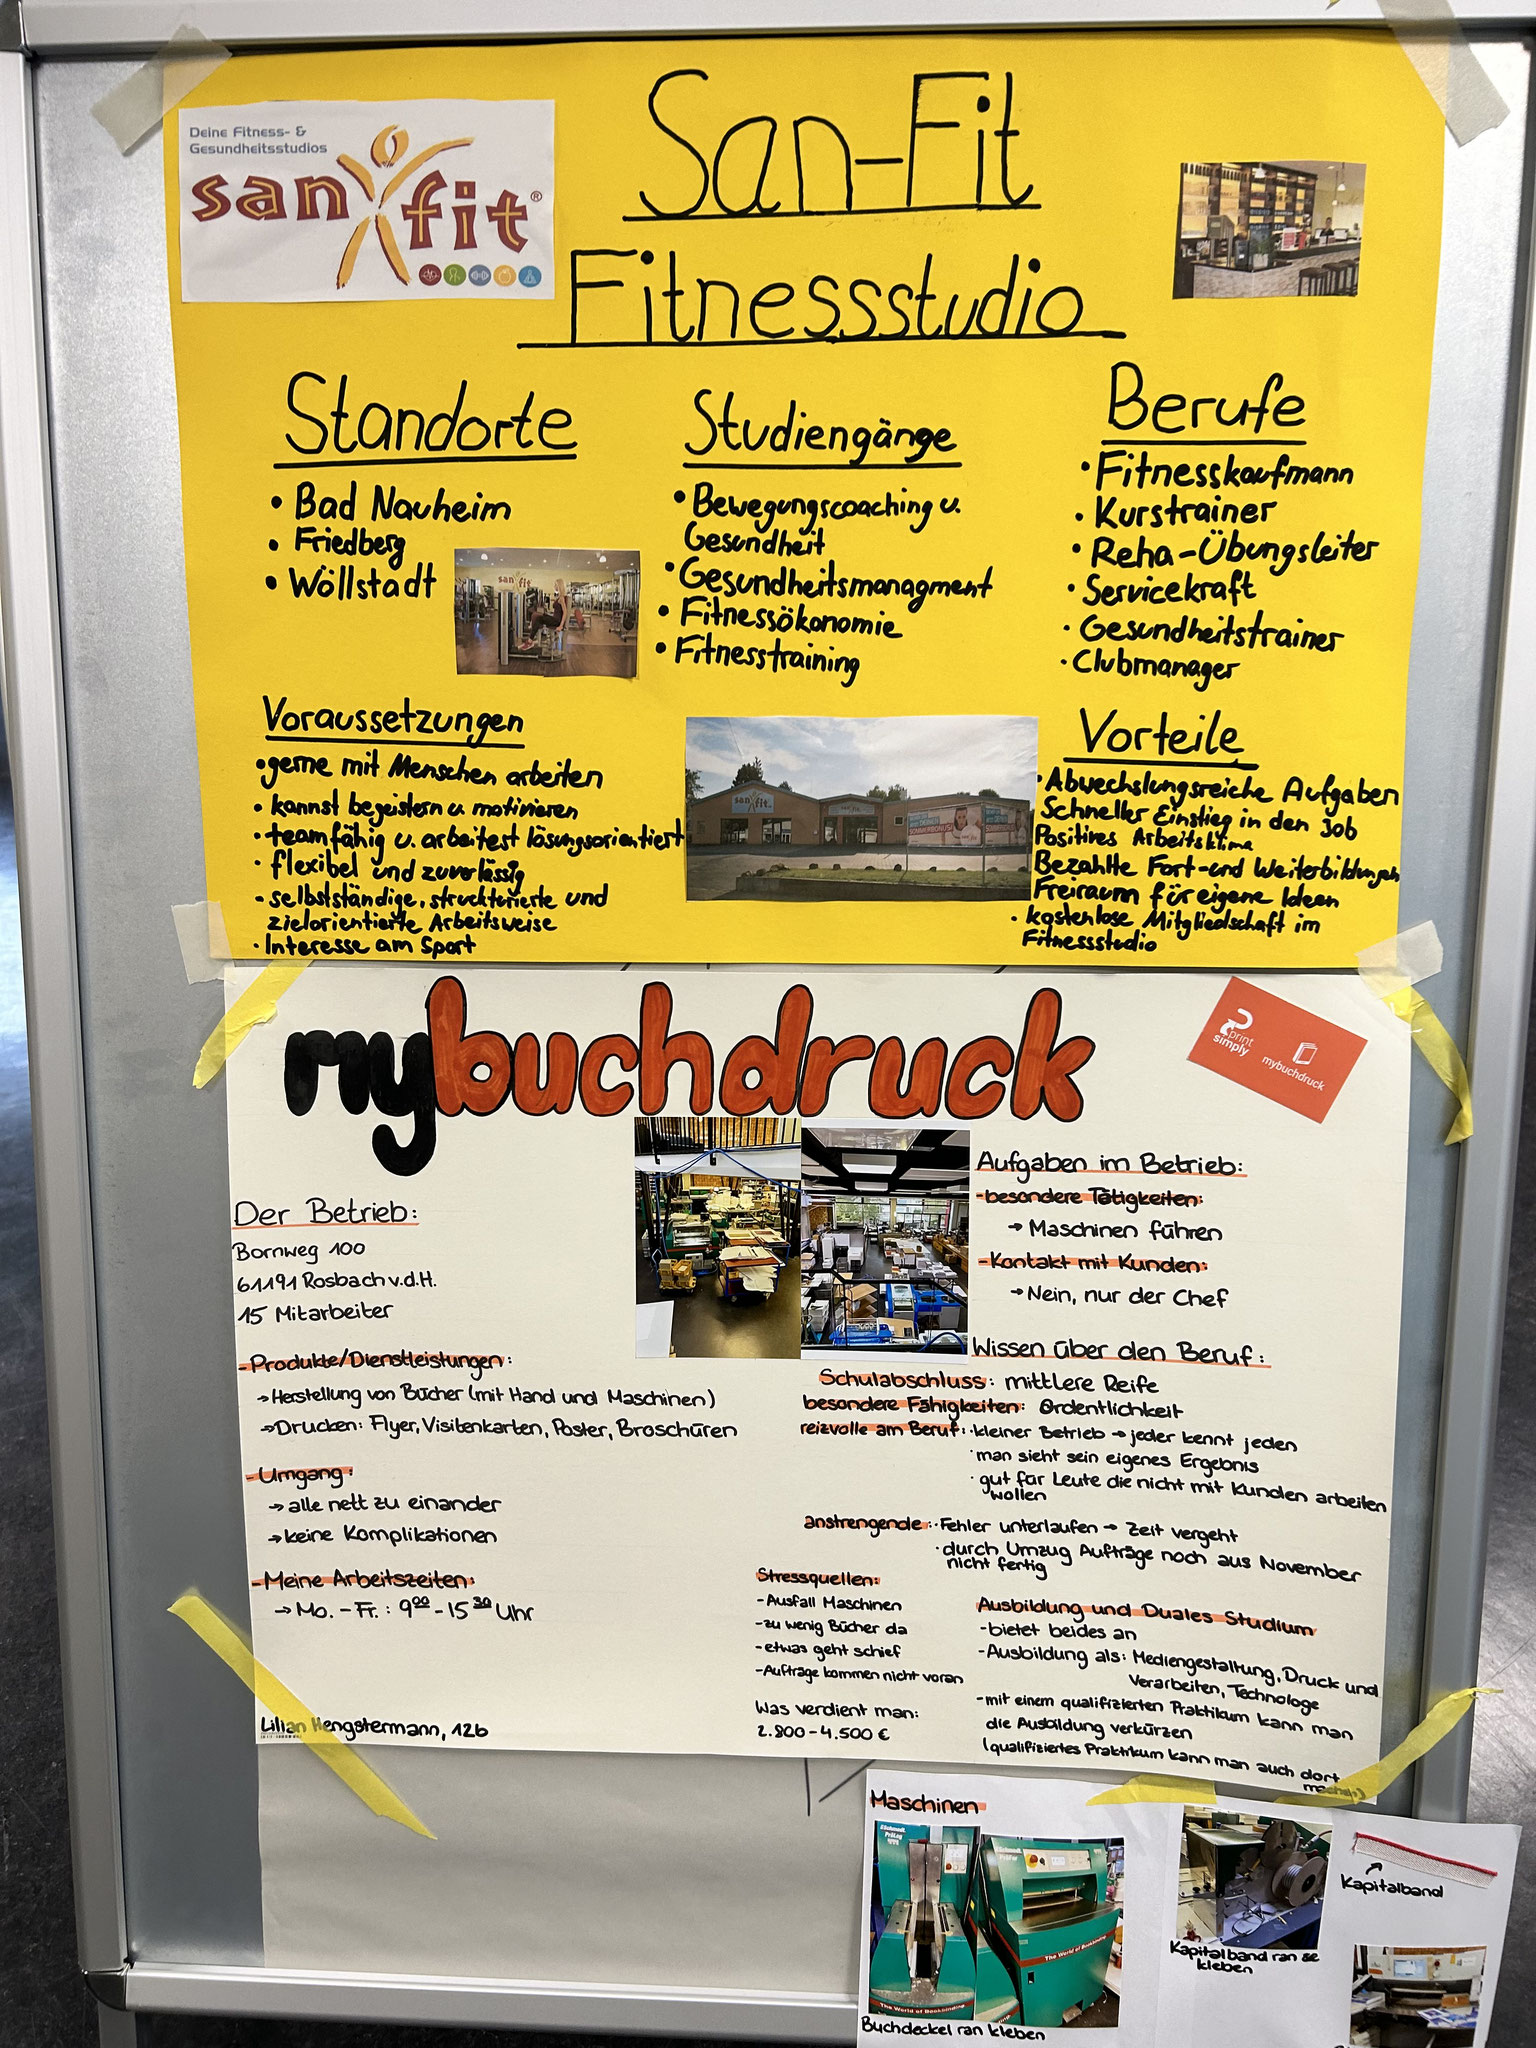 Deine Fitness- &
Gesundheitsstudios
san fit®
San-Fit
Fitnessstudio
Standorte
• Bad Nauheim
• Friedberg
• Wöllstadt
Studiengänge
• Bewegungscoaching u.
Gesundheit
• Gesundheitsmanagment
• Fitnessökonomie
• Fitnesstraining
Berufe
• Fitnesskaufmann
• Kurstrainer
• Reha-Übungsleiter
• Servicekraft
• Gesundheitstrainer
• Clubmanager
san fit
Voraussetzungen
• gerne mit Menschen arbeiten
• kannst begeistern u. motivieren
• teamfähig u. arbeitest lösungsorientiert
• flexibel und zuverlässig
- selbstständige, strukturierte und
zielorientierte Arbeitsweise
• Interesse am Sport
san fit
san fit
SOMMERBONUS
Vorteile
• Abwechslungsreiche Aufgaben
Schneller Einstieg in den Job
Positives Arbeitsklima
Bezahlte Fort-und Weiterbildungen
Freiraum für eigene Ideen
• kostenlose Mitgliedschaft im
Fitnessstudio
mybuchdruck
print
simply
mybuchdruck
Der Betrieb:
Bornweg 100
61191 Rosbach v.d.H.
15 Mitarbeiter
- Produkte/Dienstleistungen:
→ Herstellung von Bücher (mit Hand und Maschinen)
→ Drucken: Flyer, Visitenkarten, Poster, Broschüren
- Umgang:
→ alle nett zu einander
→ keine Komplikationen
- Meine Arbeitszeiten:
→ Mo. - Fr.: 9⁰⁰ - 15³⁰ Uhr
Lilian Hengstermann, 12b
Aufgaben im Betrieb:
- besondere Tätigkeiten:
→ Maschinen führen
- Kontakt mit Kunden:
→ Nein, nur der Chef
Wissen über den Beruf:
Schulabschluss: mittlere Reife
besondere Fähigkeiten: Ordentlichkeit
reizvolle am Beruf: · kleiner Betrieb → jeder kennt jeden
· man sieht sein eigenes Ergebnis
· gut für Leute die nicht mit Kunden arbeiten
wollen
anstrengende: · Fehler unterlaufen → Zeit vergeht
· durch Umzug Aufträge noch aus November
nicht fertig
Stressquellen:
- Ausfall Maschinen
- zu wenig Bücher da
- etwas geht schief
- Aufträge kommen nicht voran
Was verdient man:
2.800 - 4.500 €
Ausbildung und Duales Studium
- bietet beides an
- Ausbildung als: Mediengestaltung, Druck und
Verarbeiten, Technologe
- mit einem qualifizierten Praktikum kann man
die Ausbildung verkürzen
(qualifiziertes Praktikum kann man auch dort
machen)
Maschinen
The World of Bookbinding
The World of Bookbinding
Buchdeckel ran kleben
Kapitalband ran
kleben
Kapitalband